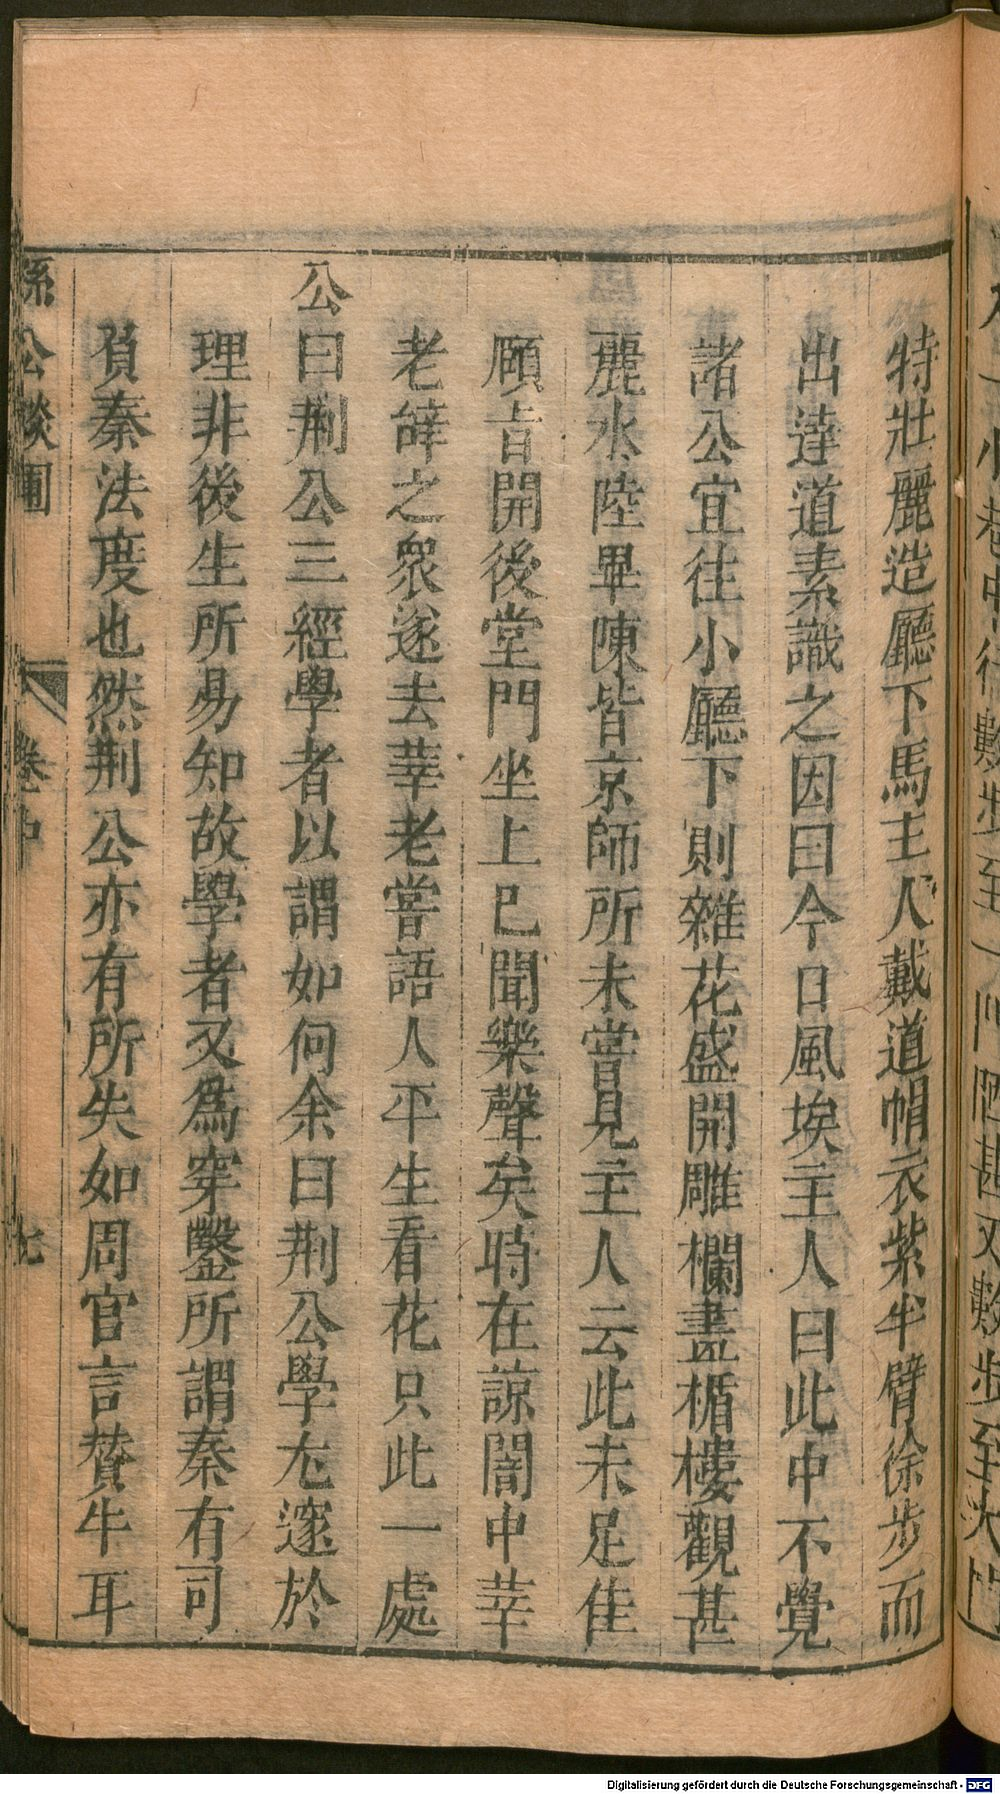 特壯麗造廳下馬主人戴道帽衣紫半臂徐步而
出達道素識之因曰今日風埃主人曰此中不覺
諸公宜往小廳下則雜花盛開雕欄畫楯樓觀甚
麗水陸畢陳皆京師所未嘗見主人云此未足佳
頤㫖開後堂門坐上已聞樂聲矣時在諒闇中莘
老辭之衆遂去莘老嘗語人平生看花只此一處
公曰荆公三經學者以謂如何余曰荆公學尤邃於
理非後生所易知故學者又為穿鑿所謂秦有司
負秦法度也然荆公亦有所失如周官言贊牛耳
孫公談圃
卷中
七
Digitalisierung gefördert durch die Deutsche Forschungsgemeinschaft - DFG